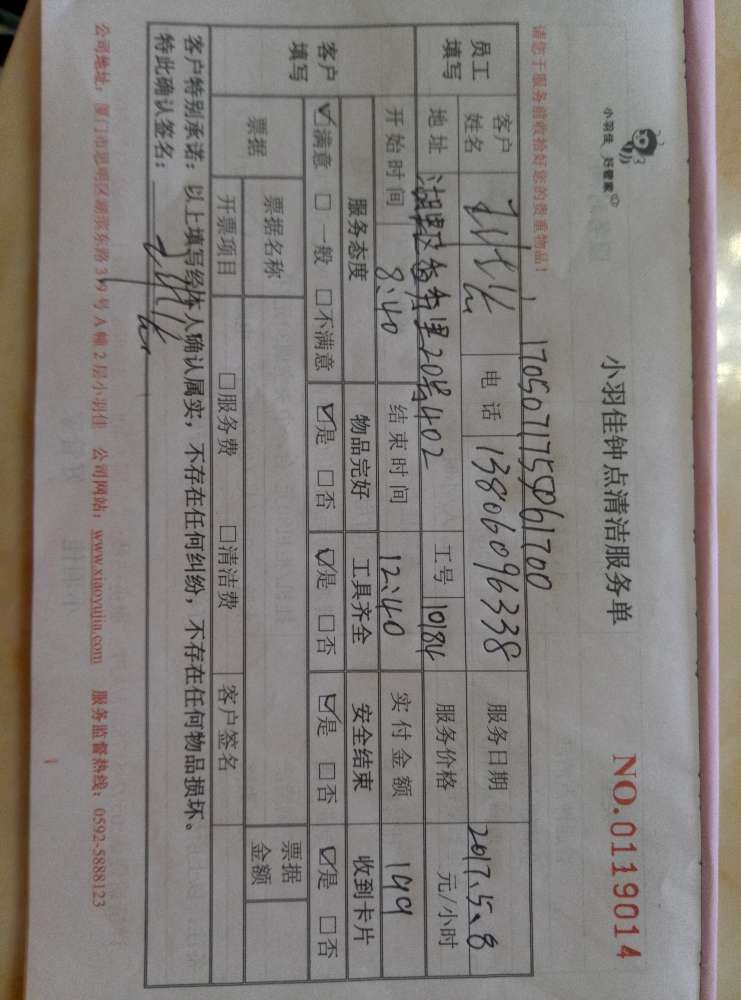 小羽佳 好管家
小羽佳钟点清洁服务单
NO.0119014
请您于服务前收拾好您的贵重物品!
1705071755061700
员工填写 客户姓名 电话 13806096338 服务日期 2017.5.8
地址 湖里区 里208号402 工号 10184 服务价格 元/小时
开始时间 8:40 结束时间 12:40 实付金额 199
客户填写 服务态度 物品完好 工具齐全 安全结束 收到卡片
☑满意 □一般 □不满意 ☑是 □否 ☑是 □否 ☑是 □否 ☑是 □否
票据 票据名称 票据金额
开票项目 □服务费 □清洁费 客户签名
客户特别承诺:以上填写经本人确认属实,不存在任何纠纷,不存在任何物品损坏。
特此确认签名:
公司地址:厦门市思明区湖滨东路319号A幢2层小羽佳 公司网站:www.xiaoyujia.com 服务监督热线:0592-5888123